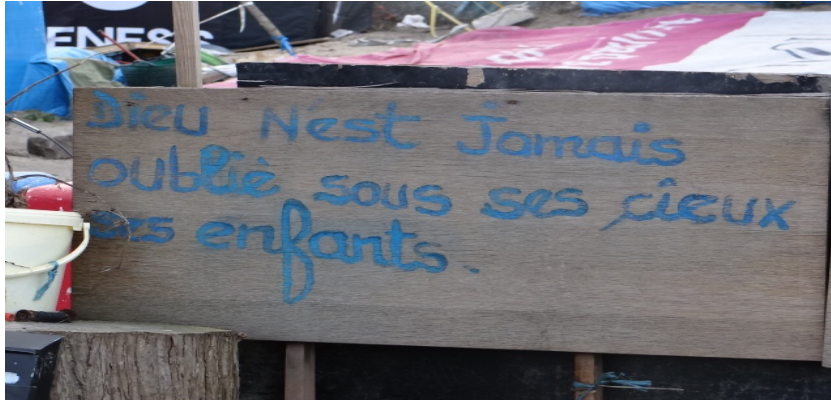 ENESS
Dieu N'est Jamais
oublié sous ses cieux
ses enfants.